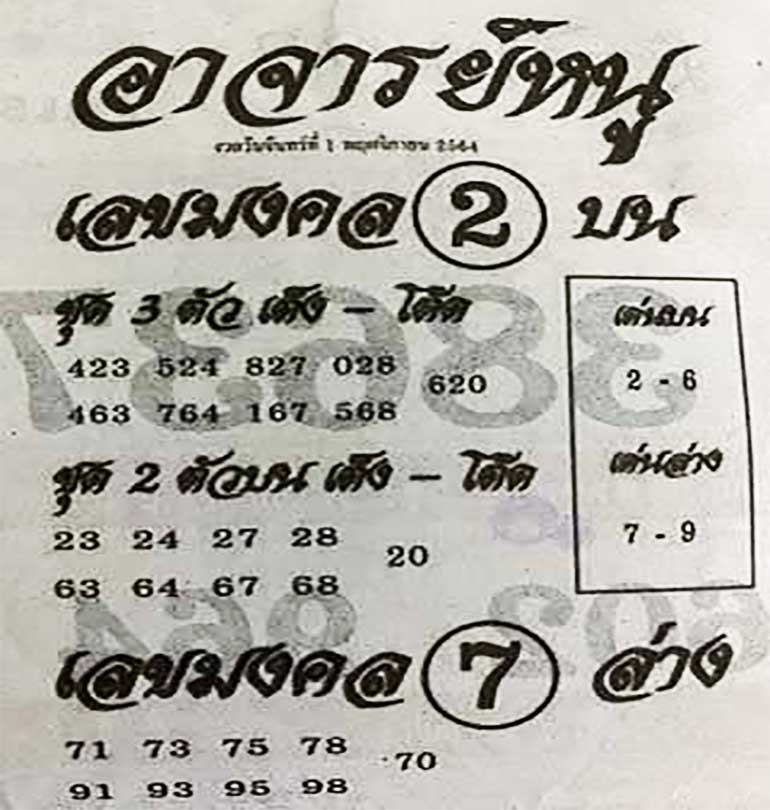 อาจารย์หนู
งวดวันจันทร์ที่ 1 พฤศจิกายน 2564
เลขมงคล 2 บน
ชุด 3 ตัว เต็ง - โต๊ด
423 524 827 028
620
463 764 167 568
เด่นบน
2 - 6
เด่นล่าง
7 - 9
ชุด 2 ตัวบน เต็ง - โต๊ด
23 24 27 28
20
63 64 67 68
เลขมงคล 7 ล่าง
71 73 75 78
70
91 93 95 98